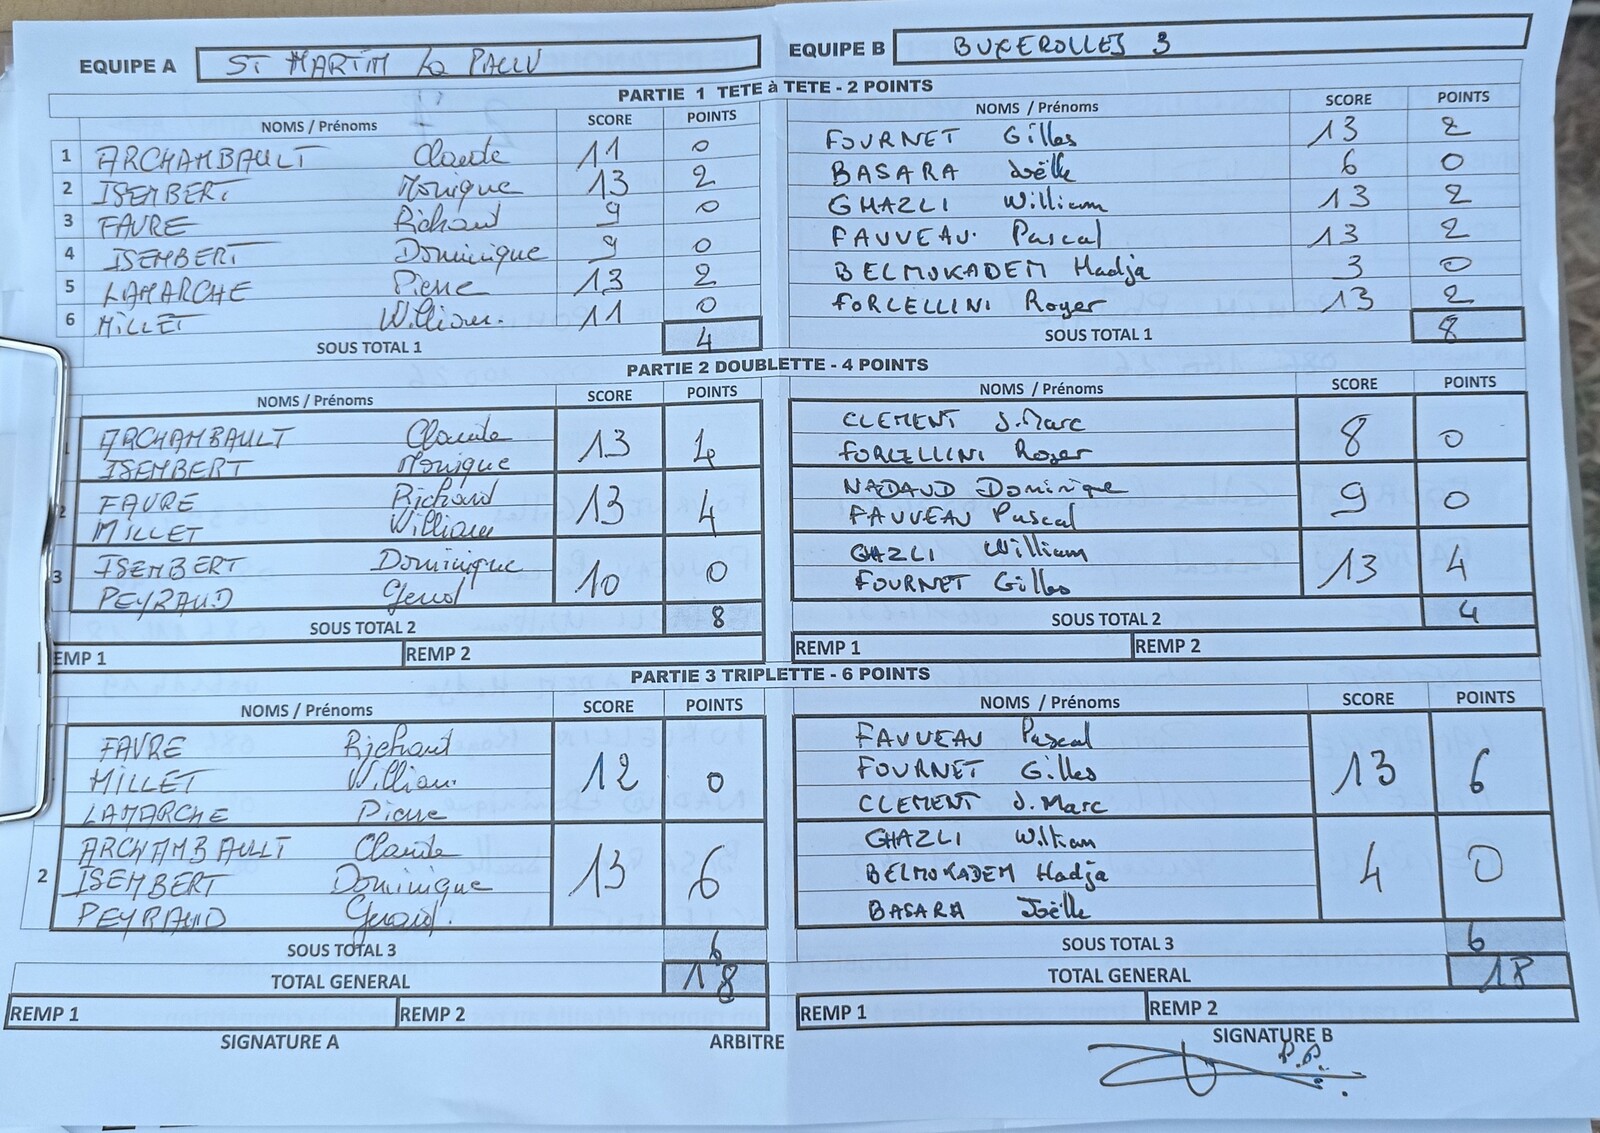 EQUIPE A ST MARTIN La PALLU EQUIPE B BUXEROLLES 3
PARTIE 1 TETE à TETE - 2 POINTS
NOMS / Prénoms SCORE POINTS NOMS / Prénoms SCORE POINTS
1 ARCHAMBAULT Claude 11 0 FOURNET Gilles 13 2
2 ISEMBERT Monique 13 2 BASARA Joëlle 6 0
3 FAVRE Richard 9 0 GHAZLI William 13 2
4 ISEMBERT Dominique 9 0 FAUVEAU Pascal 13 2
5 LAMARCHE Pierre 13 2 BELMOKADEM Hadja 3 0
6 MILLET William. 11 0 FORCELLINI Roger 13 2
SOUS TOTAL 1 4 SOUS TOTAL 1 8
PARTIE 2 DOUBLETTE - 4 POINTS
NOMS / Prénoms SCORE POINTS NOMS / Prénoms SCORE POINTS
1 ARCHAMBAULT Claude 13 4 CLEMENT J.Marc 8 0
ISEMBERT Monique FORCELLINI Roger
2 FAVRE Richard 13 4 NADAUD Dominique 9 0
MILLET William FAUVEAU Pascal
3 ISEMBERT Dominique 10 0 GHAZLI William 13 4
PEYRAUD Gerard FOURNET Gilles
SOUS TOTAL 2 8 SOUS TOTAL 2 4
EMP 1 REMP 2 REMP 1 REMP 2
PARTIE 3 TRIPLETTE - 6 POINTS
NOMS / Prénoms SCORE POINTS NOMS / Prénoms SCORE POINTS
FAVRE Richard FAUVEAU Pascal
MILLET William. 12 0 FOURNET Gilles 13 6
LAMARCHE Pierre CLEMENT J.Marc
ARCHAMBAULT Claude GHAZLI William
2 ISEMBERT Dominique 13 6 BELMOKADEM Hadja 4 0
PEYRAUD Gerard. BASARA Joëlle
SOUS TOTAL 3 6 SOUS TOTAL 3 6
TOTAL GENERAL 18 TOTAL GENERAL 18
REMP 1 REMP 2 REMP 1 REMP 2
SIGNATURE A ARBITRE SIGNATURE B
P.P.